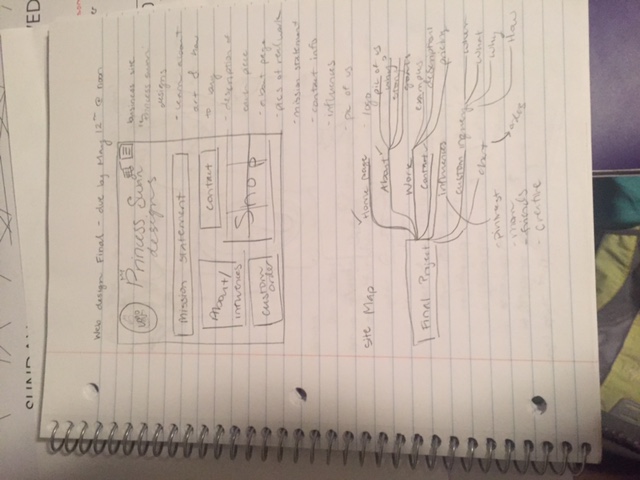 SUNDA
WED
Web design Final - due by May 12th @ noon
Princess Sunn
designs
Mission Statement
About/
influences
Contact
Shop
custom
order
business site
princess sunn
designs
- learn about
art & how
to buy
- description of
each piece
- about page
- pics of real work
- mission statement
- contact info
- influences
- pic of us
- logo
Site Map
Final Project
Home page
About
pic of us
why?
story
goals
Work
examples
description
pricing
Contact
influences
- pintrest
- mom
- friends
- creative
custom
what
why
How